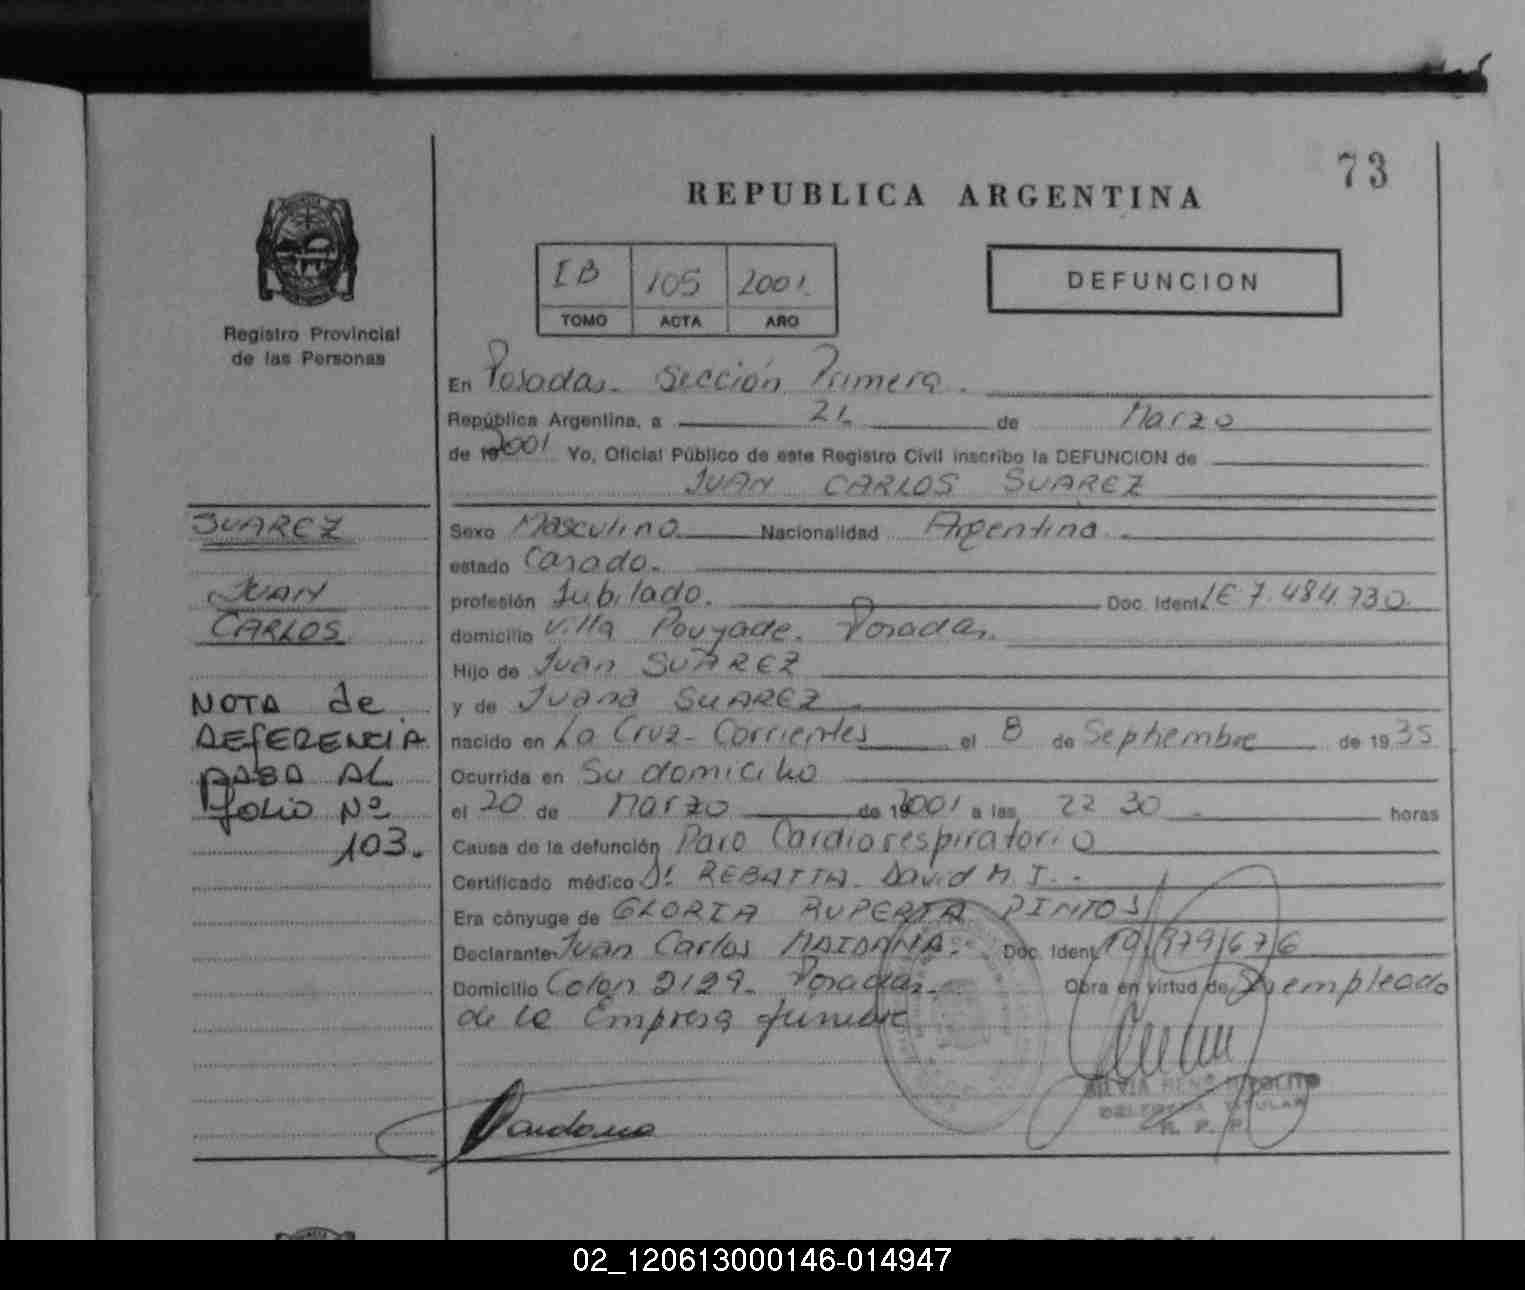 73
REPUBLICA ARGENTINA
IB 105 2001
TOMO ACTA AÑO
DEFUNCION
Registro Provincial
de las Personas
En Posadas. Sección Primera.
República Argentina, a 21 de Marzo
de 2001 Yo, Oficial Público de este Registro Civil inscribo la DEFUNCION de
JUAN CARLOS SUAREZ
SUAREZ
JUAN
CARLOS
NOTA de
REFERENCIA
PASA AL
folio Nº
103.
Sexo Masculino Nacionalidad Argentina.
estado Casado.
profesión Jubilado. Doc. Ident. LE 7.484.730.
domicilio Villa Pouyade. Posadas.
Hijo de Juan SUAREZ
y de Juana SUAREZ.
nacido en La Cruz - Corrientes el 8 de Septiembre de 1935
Ocurrida en Su domicilio
el 20 de Marzo de 2001 a las 22 30 horas
Causa de la defunción Paro Cardiorespiratorio
Certificado médico Dr. REBATTA. David M. I.
Era cónyuge de GLORIA RUPERTA PINTOS
Declarante Juan Carlos MAIDANA. Doc. Ident. 10/979/676
Domicilio Colon 2129. Posadas. Obra en virtud de Ser empleado
de la Empresa funebre
TITULAR
R. P. P.
02_120613000146-014947